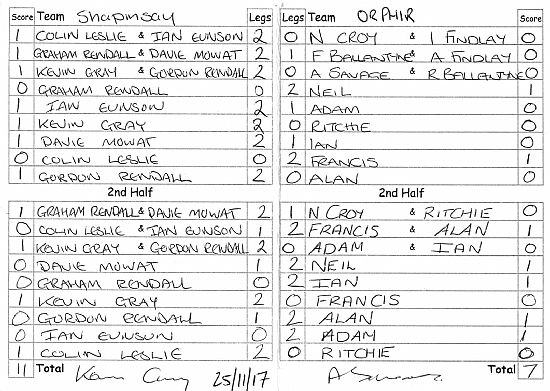 Score Team Shapinsay Legs Legs Team ORPHIR Score
1 COLIN LESLIE & IAN EUNSON 2 0 N CROY & I FINDLAY 0
1 GRAHAM RENDALL & DAVIE MOWAT 2 1 F BALLANTYNE & A FINDLAY 0
1 KEVIN GRAY & GORDON RENDALL 2 0 A SAVAGE & R BALLANTYNE 0
0 GRAHAM RENDALL 0 2 NEIL 1
1 IAN EUNSON 2 1 ADAM 0
1 KEVIN GRAY 2 0 RITCHIE 0
1 DAVIE MOWAT 2 1 IAN 0
0 COLIN LESLIE 0 2 FRANCIS 1
1 GORDON RENDALL 2 0 ALAN 0
2nd Half 2nd Half
1 GRAHAM RENDALL & DAVIE MOWAT 2 1 N CROY & RITCHIE 0
0 COLIN LESLIE & IAN EUNSON 1 2 FRANCIS & ALAN 1
1 KEVIN GRAY & GORDON RENDALL 2 0 ADAM & IAN 0
0 DAVIE MOWAT 1 2 NEIL 1
0 GRAHAM RENDALL 0 2 IAN 1
1 KEVIN GRAY 2 0 FRANCIS 0
0 GORDON RENDALL 1 2 ALAN 1
0 IAN EUNSON 0 2 ADAM 1
1 COLIN LESLIE 2 0 RITCHIE 0
11 Total 25/11/17 Total 7